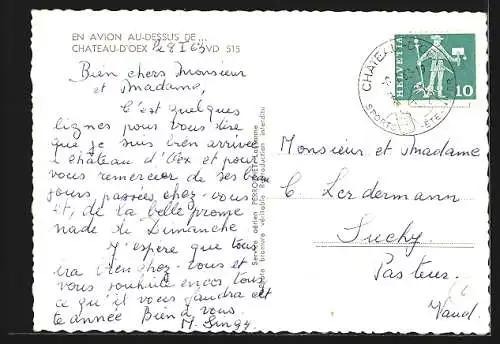 EN AVION AU-DESSUS DE...
CHATEAU-D'OEX VD 515
le 8 I 63
Bien chers Monsieur
et Madame,
C'est quelques
lignes pour vous dire
que je suis bien arrivée
à Château d'Oex et pour
vous remercier de ses beau
jours passées chez-vous
et, de la belle prome
nade de Dimanche
J'espère que tous
ira bien chez-vous et
vous souhaite encor tous
ce qu'il vous faudra cet
te année Bien à vous
M.
Service aérien PERROCHET Lausanne
Simple bromure véritable Reproduction interdite
HELVETIA
10
CHATEAU-D'OEX
SPORTS
ÉTÉ
Monsieur et Madame
C Lerdermann
Suchy
Pasteur.
Vaud.